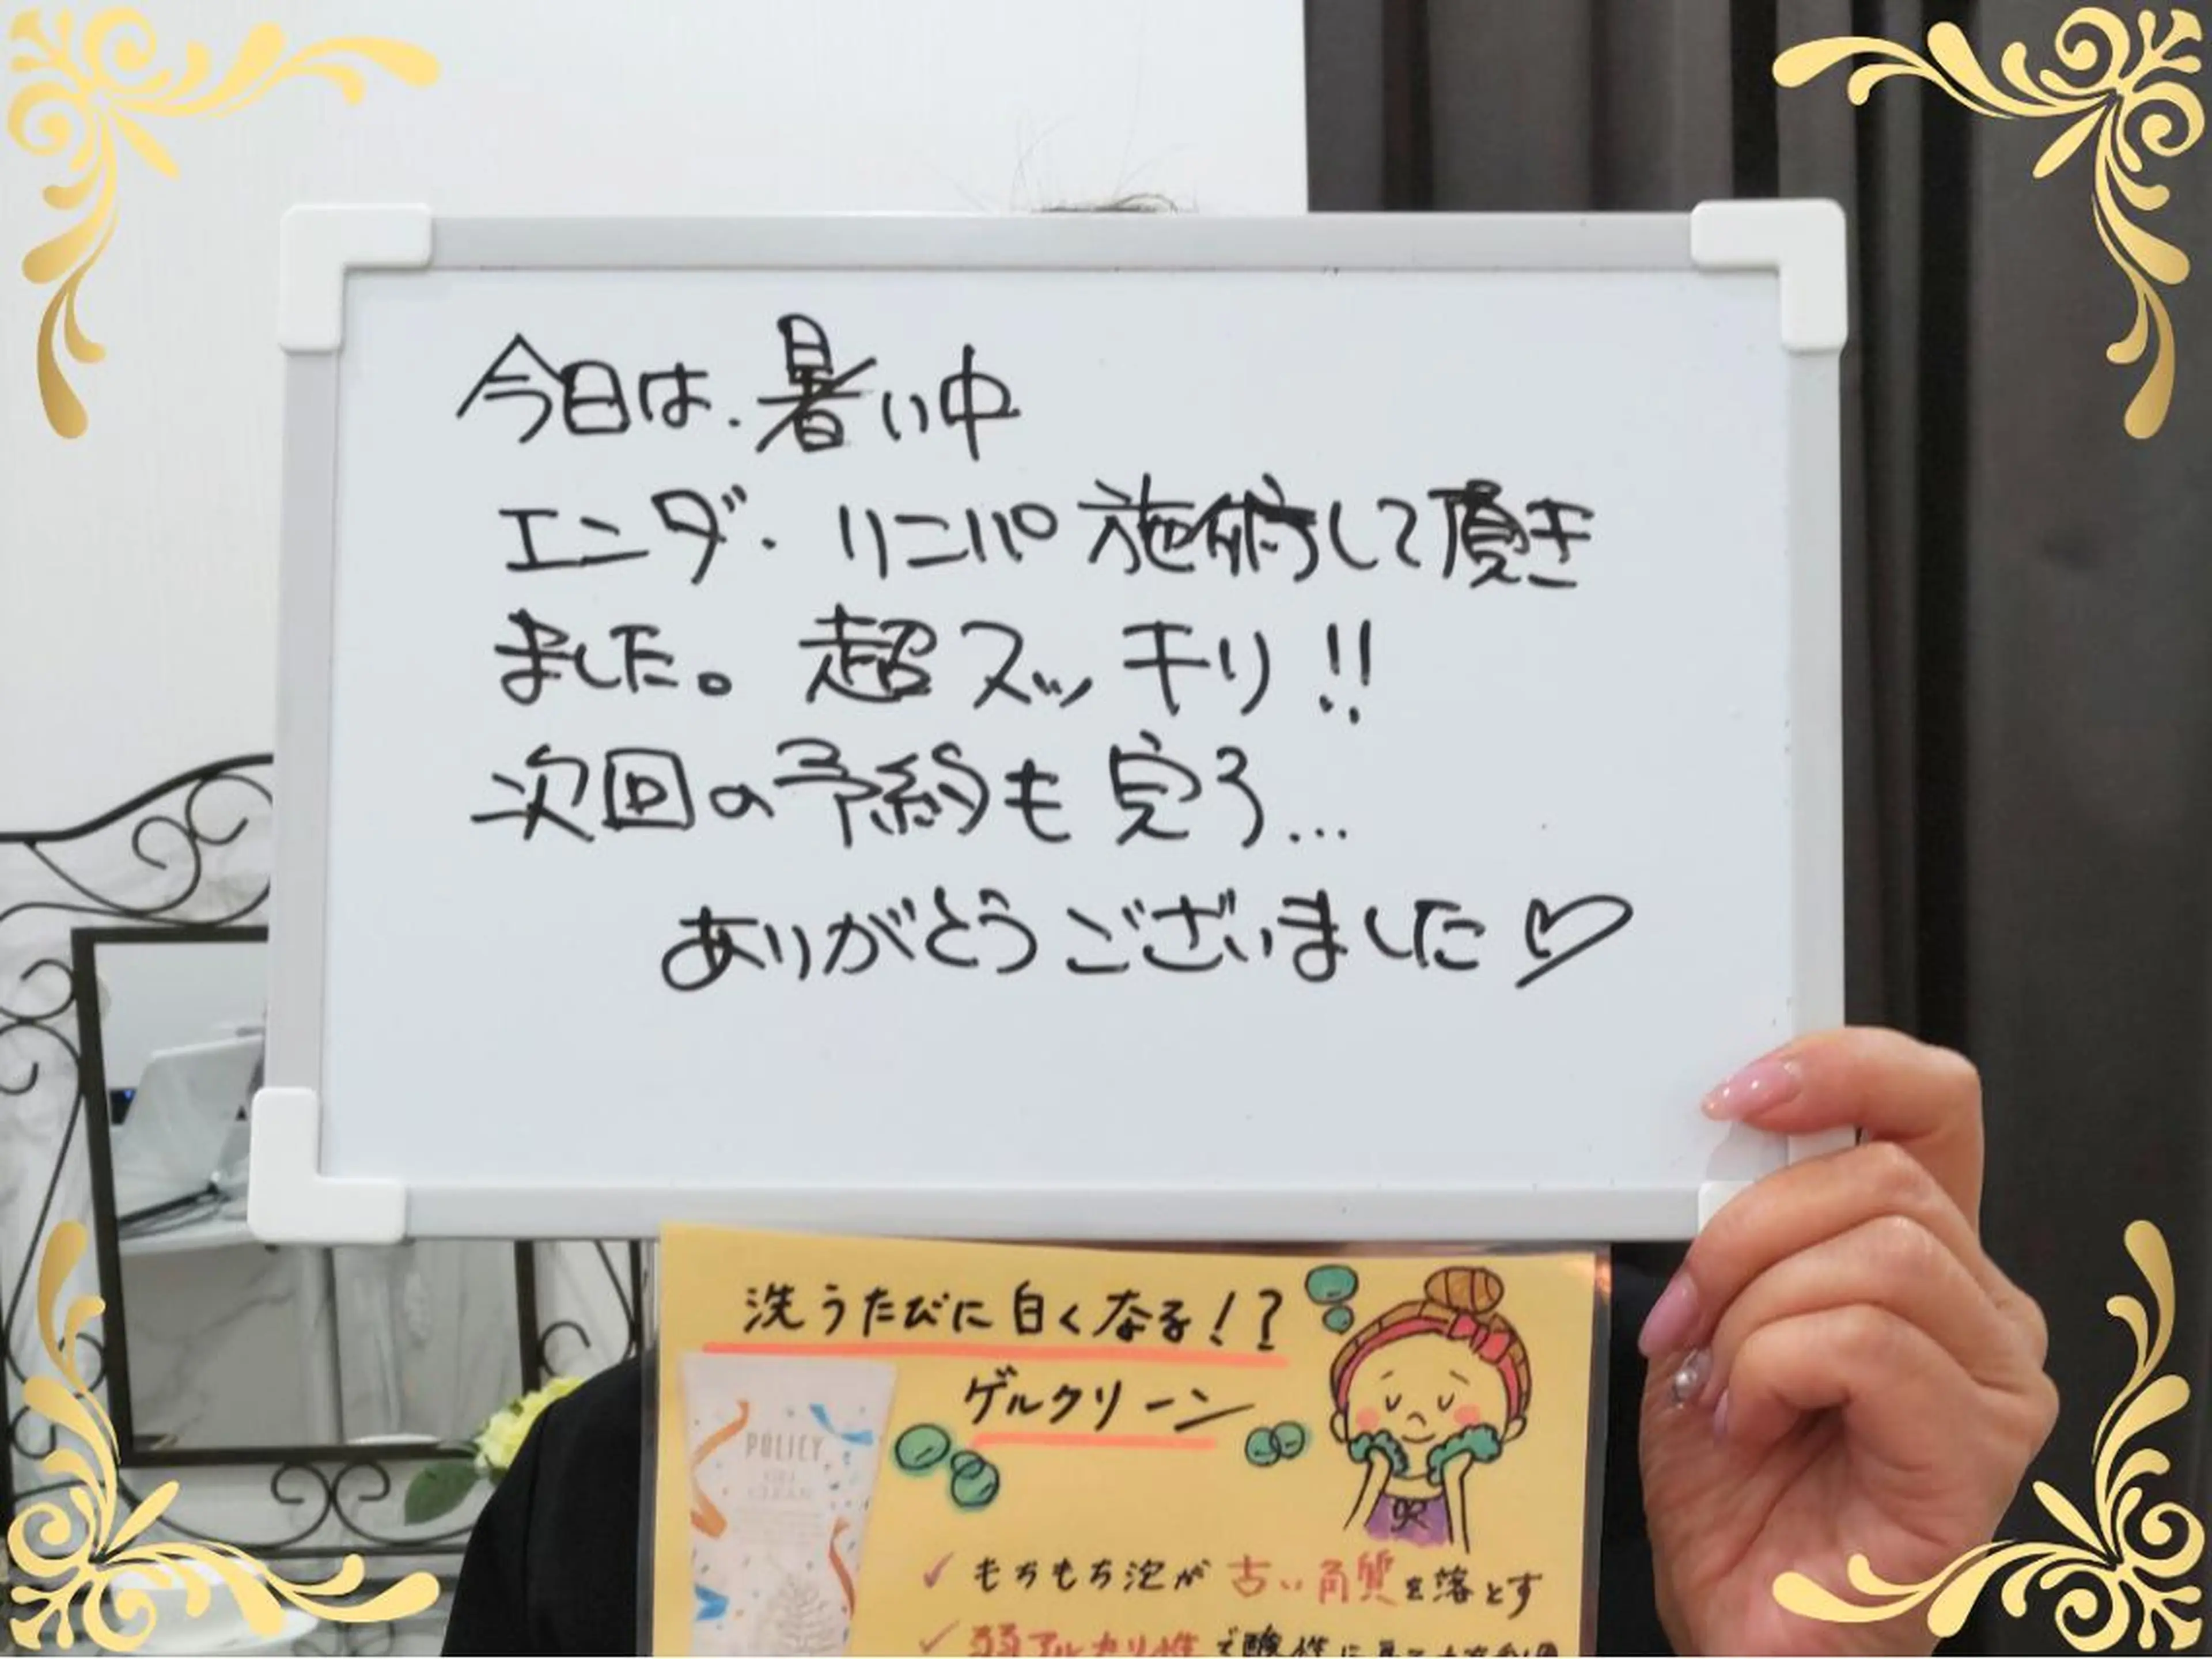 今日は、暑い中
エンダ・リンパ施術して頂き
ました。超スッキリ!!
次回の予約も完了...
ありがとうございました♡
洗うたびに白くなる!?
ゲルクリーン
POLICY
✓ もちもち泡が古い角質を落とす
✓ 弱アルカリ性で酸性に